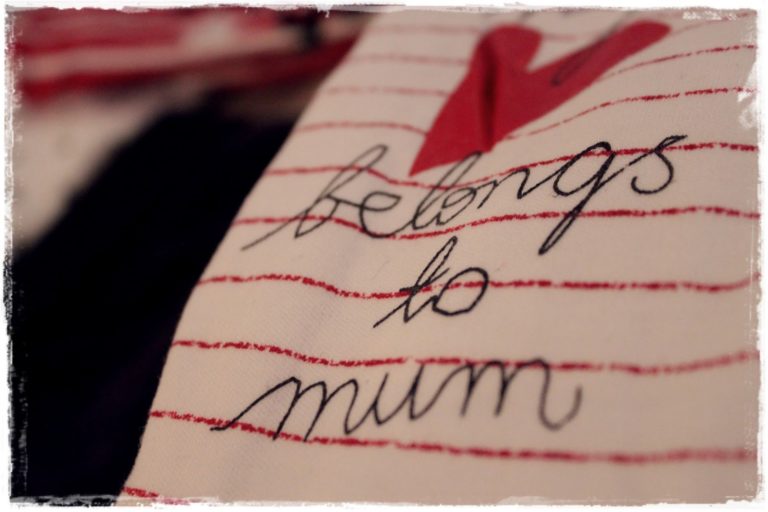 belongs
to
mum